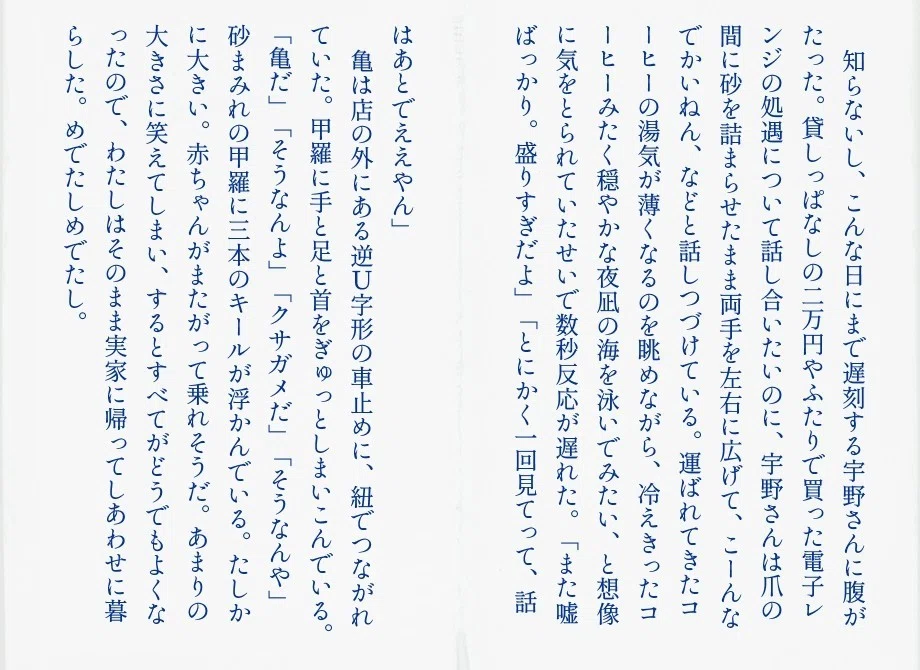 知らないし、こんな日にまで遅刻する宇野さんに腹が
たった。貸しっぱなしの二万円やふたりで買った電子レ
ンジの処遇について話し合いたいのに、宇野さんは爪の
間に砂を詰まらせたまま両手を左右に広げて、こーんな
でかいねん、などと話しつづけている。運ばれてきたコ
ーヒーの湯気が薄くなるのを眺めながら、冷えきったコ
ーヒーみたく穏やかな夜凪の海を泳いでみたい、と想像
に気をとられていたせいで数秒反応が遅れた。「また嘘
ばっかり。盛りすぎだよ」「とにかく一回見てって、話
はあとでええやん」
亀は店の外にある逆U字形の車止めに、紐でつながれ
ていた。甲羅に手と足と首をぎゅっとしまいこんでいる。
「亀だ」「そうなんよ」「クサガメだ」「そうなんや」
砂まみれの甲羅に三本のキールが浮かんでいる。たしか
に大きい。赤ちゃんがまたがって乗れそうだ。あまりの
大きさに笑えてしまい、するとすべてがどうでもよくな
ったので、わたしはそのまま実家に帰ってしあわせに暮
らした。めでたしめでたし。